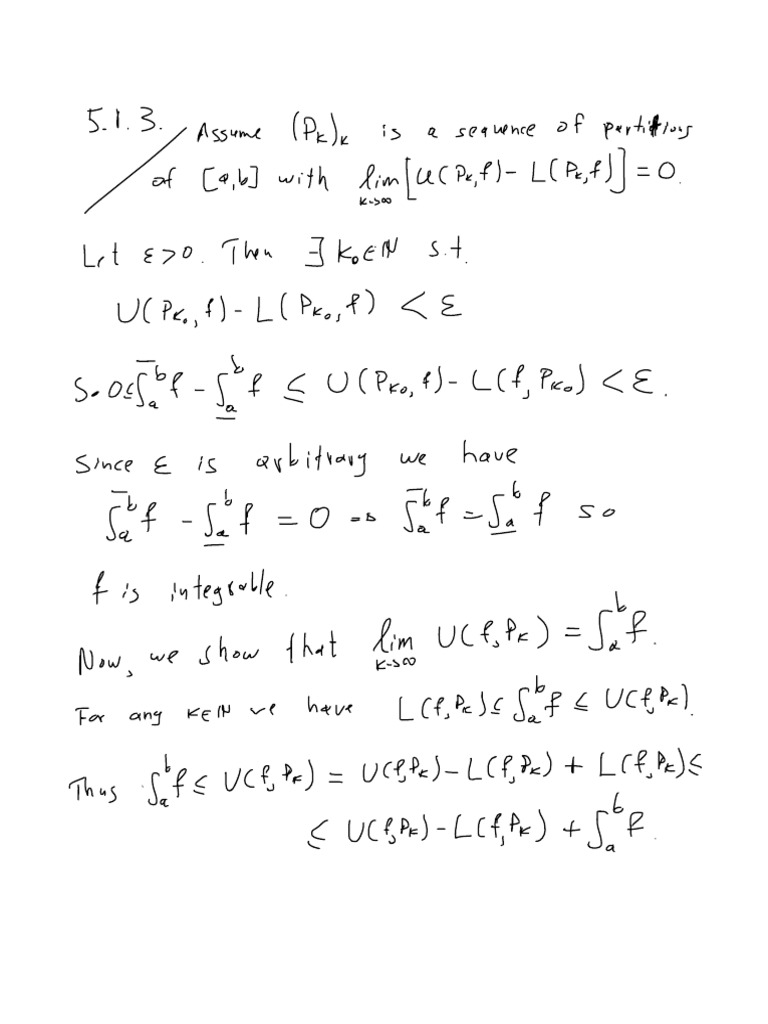 5.1.3. Assume (P_k)_k is a sequence of partitions
of [a,b] with lim_{k→∞} [U(P_k,f) - L(P_k,f)] = 0.
Let ε>0. Then ∃ k₀∈ℕ s.t.
U(P_{k₀},f) - L(P_{k₀},f) < ε
So 0≤ ∫̅_a^b f - ∫̲_a^b f ≤ U(P_{k₀},f) - L(f,P_{k₀}) < ε.
Since ε is arbitrary we have
∫̅_a^b f - ∫̲_a^b f = 0 ⇒ ∫̅_a^b f = ∫̲_a^b f so
f is integrable.
Now, we show that lim_{k→∞} U(f,P_k) = ∫_a^b f.
For any k∈ℕ we have L(f,P_k) ≤ ∫_a^b f ≤ U(f,P_k).
Thus ∫_a^b f ≤ U(f,P_k) = U(f,P_k) - L(f,P_k) + L(f,P_k) ≤
≤ U(f,P_k) - L(f,P_k) + ∫_a^b f.